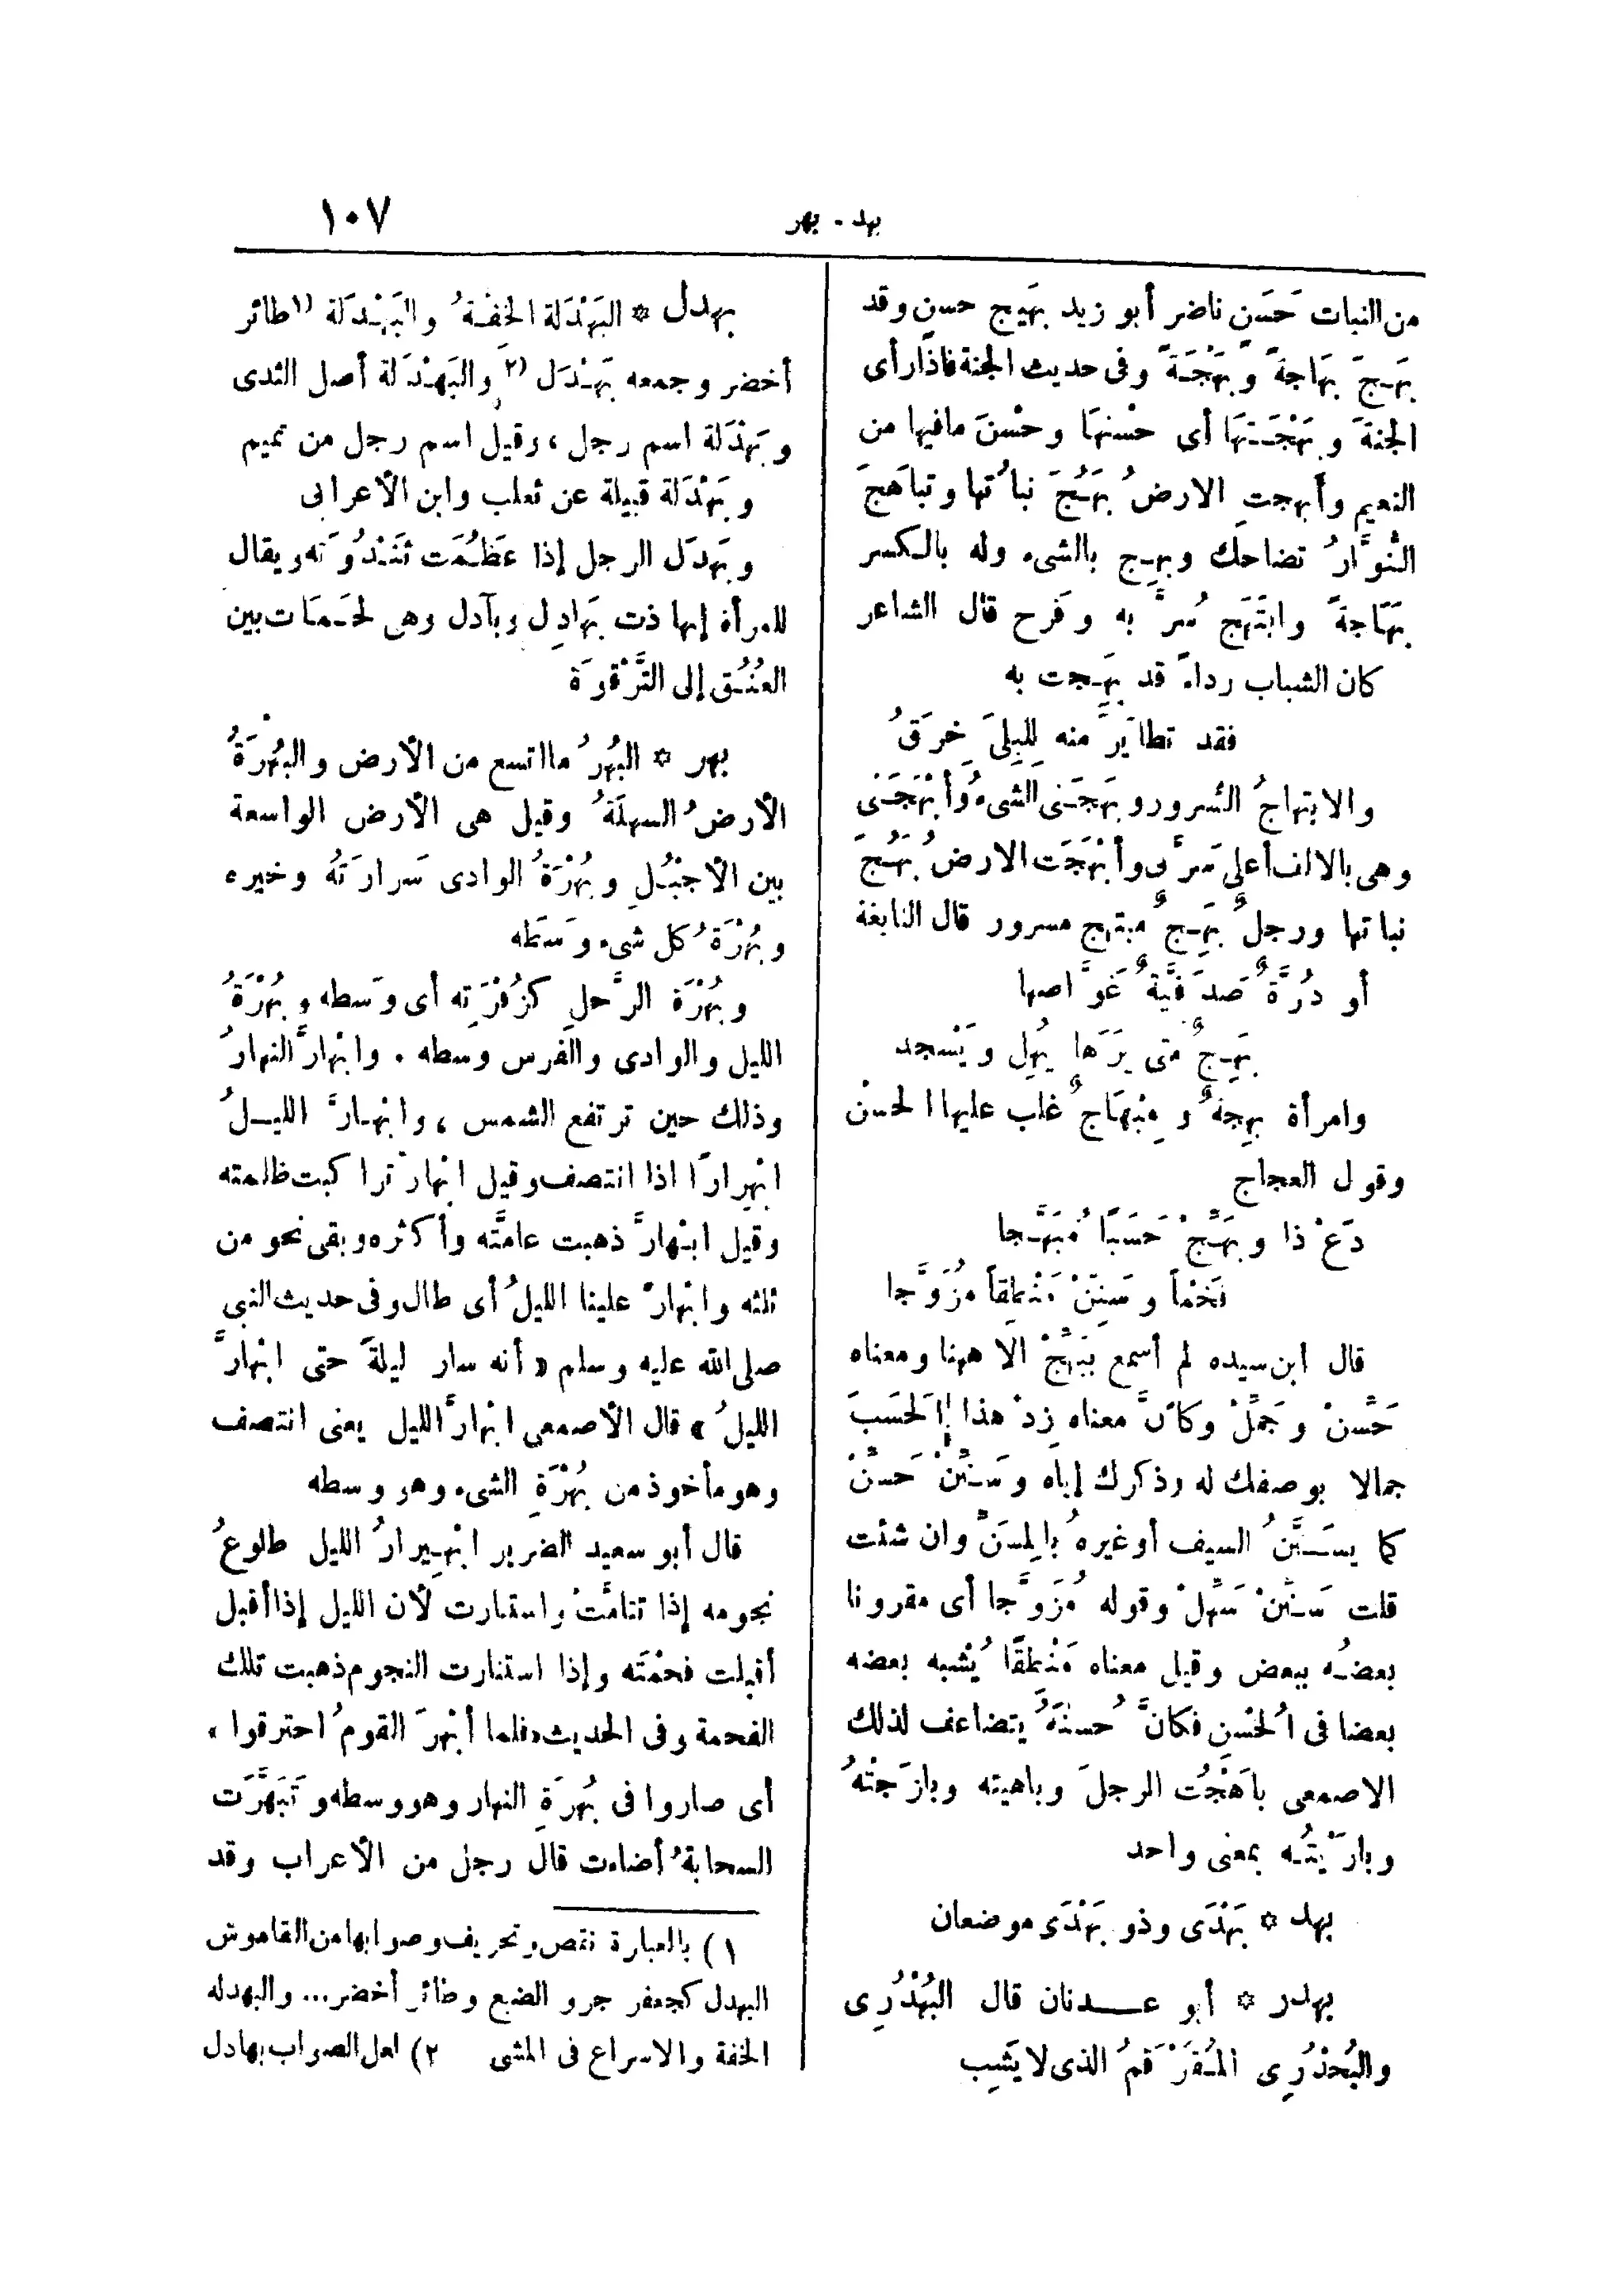 بهد - بهر
١٠٧
من النبات حَسَنٍ ناضر أبو زيد بَهيج حسنٍ وقد
بَهِجَ بَهاجةً وبَهْجَةً وفى حديث الجنة فاذا رأى
الجنةَ وبَهْجَتَها أى حُسْنَها وحُسْنَ مافيها من
النعيم وأبهجتِ الارضُ بَهُجَ نباتُها وتباهَجَ
النُّوَّارُ تضاحك وبهِج بالشىء وله بالكسر
بَهَاجةً وابتَهَج سُرَّ به وفَرح قال الشاعر
كان الشباب رداءً قد بَهِجت به
فقد تطايَرَ منه لِلبِلَى خِرَقُ
والابتهاجُ السُرور وبَهَجَنى الشىءُ وأَبْهَجَنى
وهى بالالف أعلى سَرَّنى وأَبْهَجَت الارضُ بَهُجَ
نباتها ورجلٌ بَهِجٌ مبتهج مسرور قال النابغة
أو دُرَّةٌ صَدَفيَّةٌ غَوَّاصها
بَهِجٌ متى يَرَها يُهِل ويَسْجد
وامرأة بهِجةٌ ومِبْهَاجٌ غلب عليها الحسْن
وقول العجاج
دَعْ ذا وبَهِّجْ حَسَبًا مُبَهَّجا
فَخْماً وسَنِّنْ مَنْطِقاً مزَوَّجا
قال ابن سيده لم أسمع بَهِّجْ الا ههنا ومعناه
حَسِّنْ وجَمِّلْ وكأنَّ معناه زِدْ هذا الحَسَبَ
جمالا بوصفك له وذكرك إياه وسَنِّنْ حَسِّنْ
كما يسَنَّنُ السيف أو غيرهُ بالمِسَنّ وان شئت
قلت سَنِّنْ سَهِّلْ وقوله مُزَوَّجا أى مقرونا
بعضُه ببعض وقيل معناه مَنْطِقًا يُشْبه بعضه
بعضا فى الحُسْنِ فكانَّ حُسنَهُ يتضاعف لذلك
الاصمعى باهَجْتُ الرجلَ وباهيته وبازَجْتُهُ
وبارَيْتُه بمعنى واحد
بهد * بَهْدَى وذو بَهْدَى موضعان
بهدر * أبو عدنان قال البُهْدُرِى
والبُحْدُرِى المُقَرْقَمُ الذى لا يَشِب
بهدل * البَهْدَلة الخِفةُ والبَهْدَلة ١) طائر
أخضر وجمعه بَهْدَل ٢) والبَهْدَلة أصل الثدى
وبَهْدَلة اسم رجل ، وقيل اسم رجل من تميم
وبَهْدَلة قبيلة عن ثعلب وابن الأعرابى
وبَهْدَل الرجل إذا عَظُمَت ثَنْدُوَته ويقال
للمرأة إنها ذت بَهادِل وبآدل وهى لحَمَات بين
العُنُق إلى التَّرْقُوَة
بهر * البُهْرُ ما اتسع من الأرض والبُهْرَةُ
الأرضُ السهلَةُ وقيل هى الأرض الواسعة
بين الأجْبُلِ وبُهْرَةُ الوادى سَرارَتُه وخيره
وبُهْرَةُ كل شىء وَسَطه
وبُهْرَة الرَّحلِ كزُفْرَته أى وَسطه وبُهْرَةُ
الليل والوادى والفرس وسطه . وابْهارَّ النهارُ
وذلك حين ترتفع الشمس ، وابْهارَّ الليلُ
ابْهِرارًا اذا انتصف وقيل ابْهارّ تراكبت ظلمته
وقيل ابْهارَّ ذهبت عامَّته وأكثره وبقى نحو من
ثلثه وابْهارّ علينا الليلُ أى طال وفى حديث النبى
صلى الله عليه وسلم « أنه سار ليلةً حتى ابْهارَّ
الليلُ » قال الأصمعى ابْهارَّ الليل يعنى انتصف
وهو مأخوذ من بُهْرَةِ الشىء وهو وسطه
قال أبو سعيد الضرير ابْهِيرارُ الليل طلوعُ
نجومه إذا تتامَّتْ واستنارت لأن الليل إذا أقبل
أقبلت فحْمَتَه وإذا استنارت النجوم ذهبت تلك
الفحمة وفى الحديث « فلما أبْهرَ القومُ احترقوا »
أى صاروا فى بُهرَةِ النهار وهو وسطه وتَبَهَّرَت
السحابةُ أضاءت قال رجل من الأعراب وقد
١) بالعبارة نقص وتحريف وصوابها من القاموش
البهدل كجعفر جرو الضبع وطائر أخضر... والبهدله
الخفة والاسراع فى المشى ٢) لعل الصواب بهادل